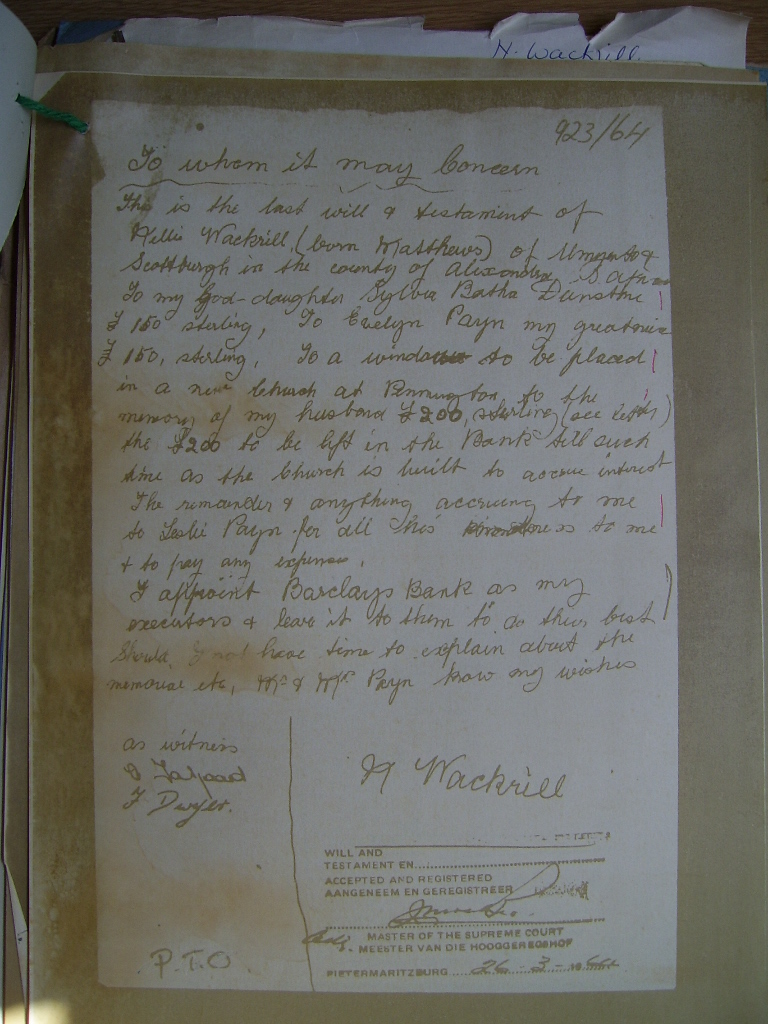 N. Wackrill
923/64
To whom it may Concern
This is the last will & testament of
Nellie Wackrill, (born Matthews) of Umzinto &
Scottburgh in the county of Alexandra, S Afr
To my God-daughter Sylvia Dunstan
£ 150 sterling, To Evelyn Payn my great niece
£ 150, sterling. To a window to be placed
in a new Church at Pennington to the
memory of my husband £200, sterling (see letter)
the £200 to be left in the Bank till such
time as the Church is built to accrue interest
The remainder & anything accruing to me
to Leslie Payn for all his to me
& to pay any expenses.
I appoint Barclays Bank as my
executors & leave it to them to do their best
Should I not have time to explain about the
memorial etc, Mr & Mrs Payn know my wishes
as witness
N Wackrill
F Dwyer.
WILL AND
TESTAMENT EN
ACCEPTED AND REGISTERED
AANGENEEM EN GEREGISTREER
MASTER OF THE SUPREME COURT
MEESTER VAN DIE HOOGGEREGSHOF
P.T.O
PIETERMARITZBURG 26-3-1964